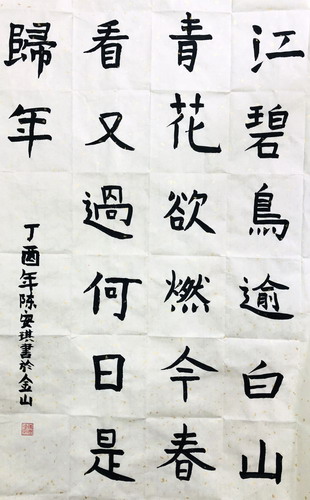 江碧鳥逾白山
青花欲燃今春
看又過何日是
歸年
丁酉年陈安琪書於金山